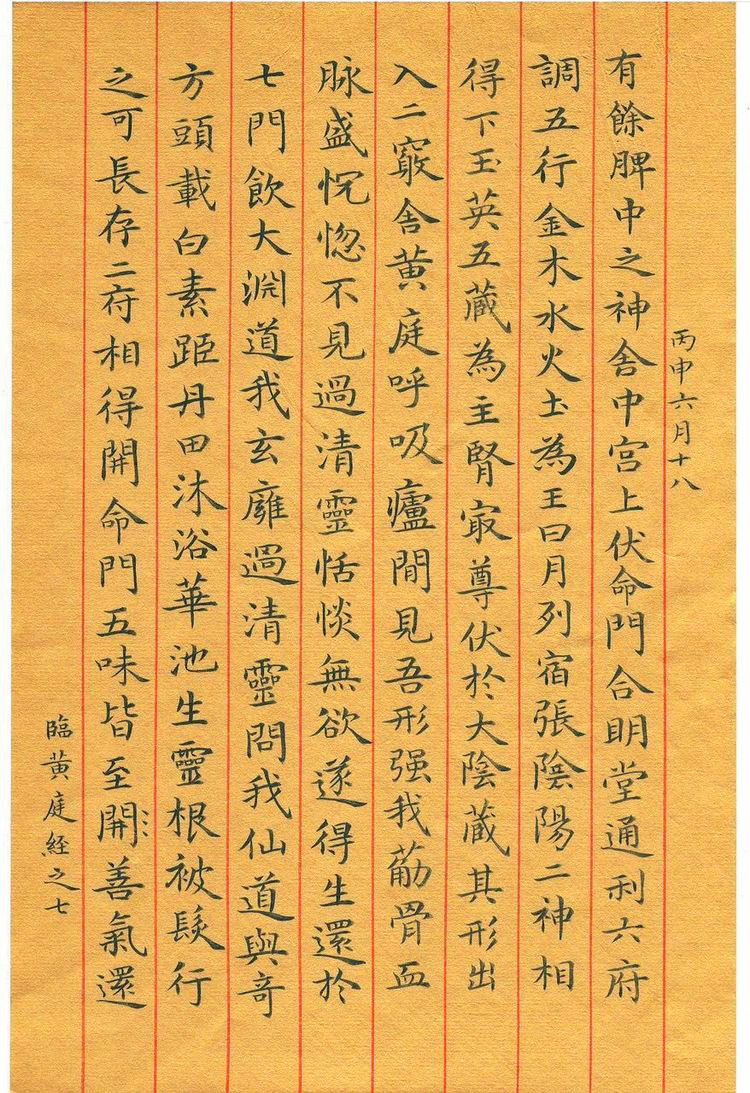 丙申六月十八
有餘脾中之神舍中宮上伏命門合明堂通利六府
調五行金木水火土為王日月列宿張陰陽二神相
得下玉英五藏為主腎㝡尊伏於大陰藏其形出
入二竅舍黃庭呼吸廬間見吾形强我筋骨血
脉盛怳惚不見過清靈恬惔無欲遂得生還於
七門飲大淵道我玄廱過清靈問我仙道與奇
方頭載白素距丹田沐浴華池生靈根被髮行
之可長存二府相得開命門五味皆至開善氣還
臨黃庭経之七